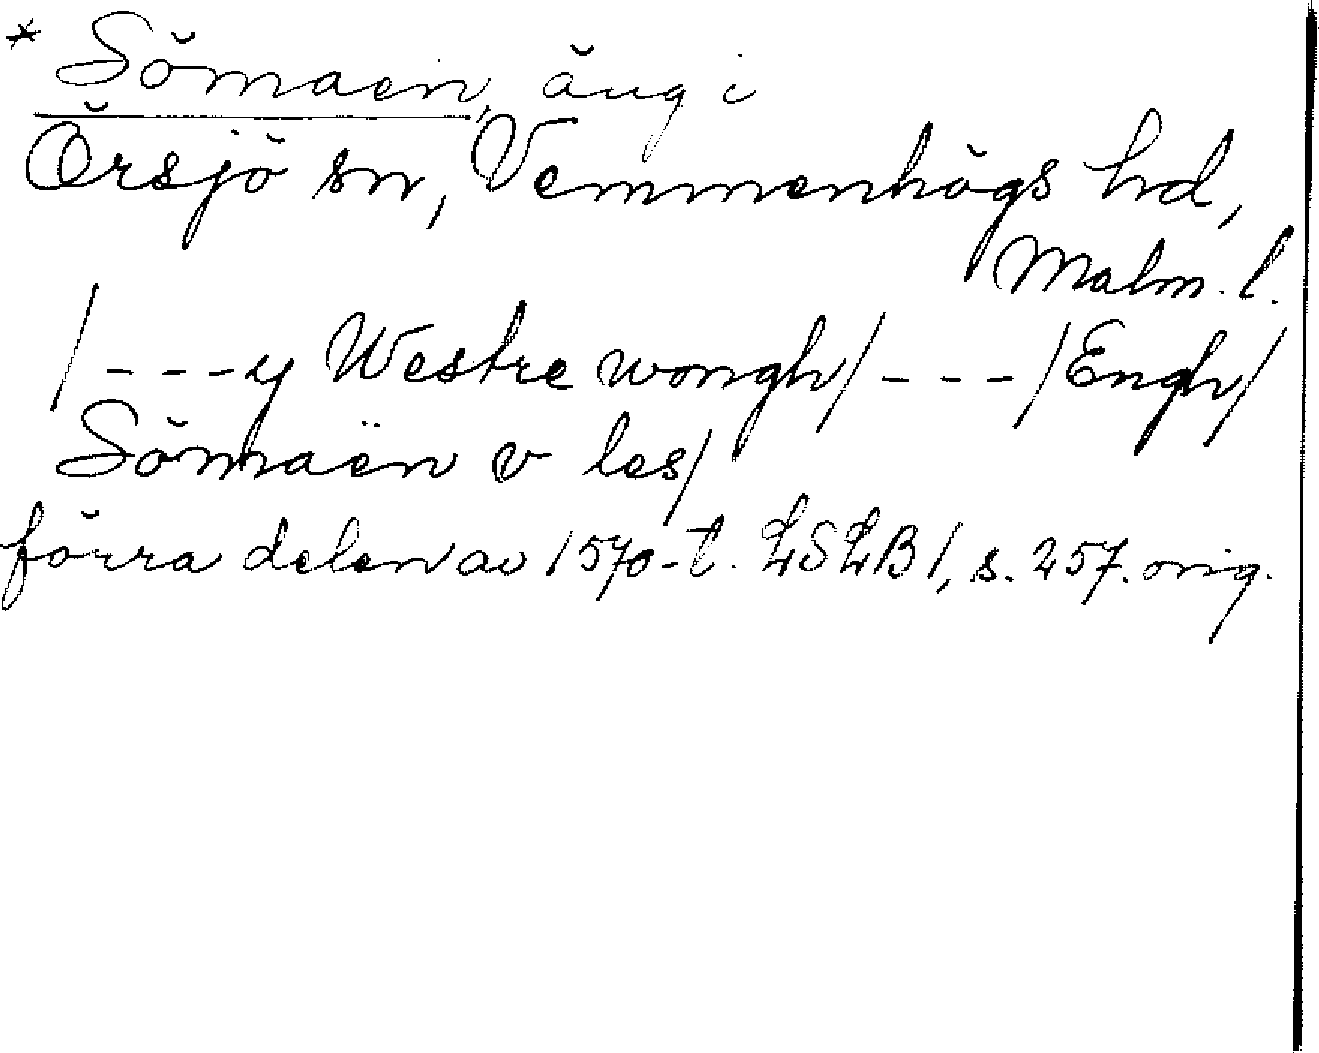 * Sömaen, äng i
Örsjö sn, Vemmenhögs hd,
Malm. l.
/---y Westre wongh/---/Engh/
Sömaën v les/
förra delen av 1570-t. LSLB 1, s. 257. orig.